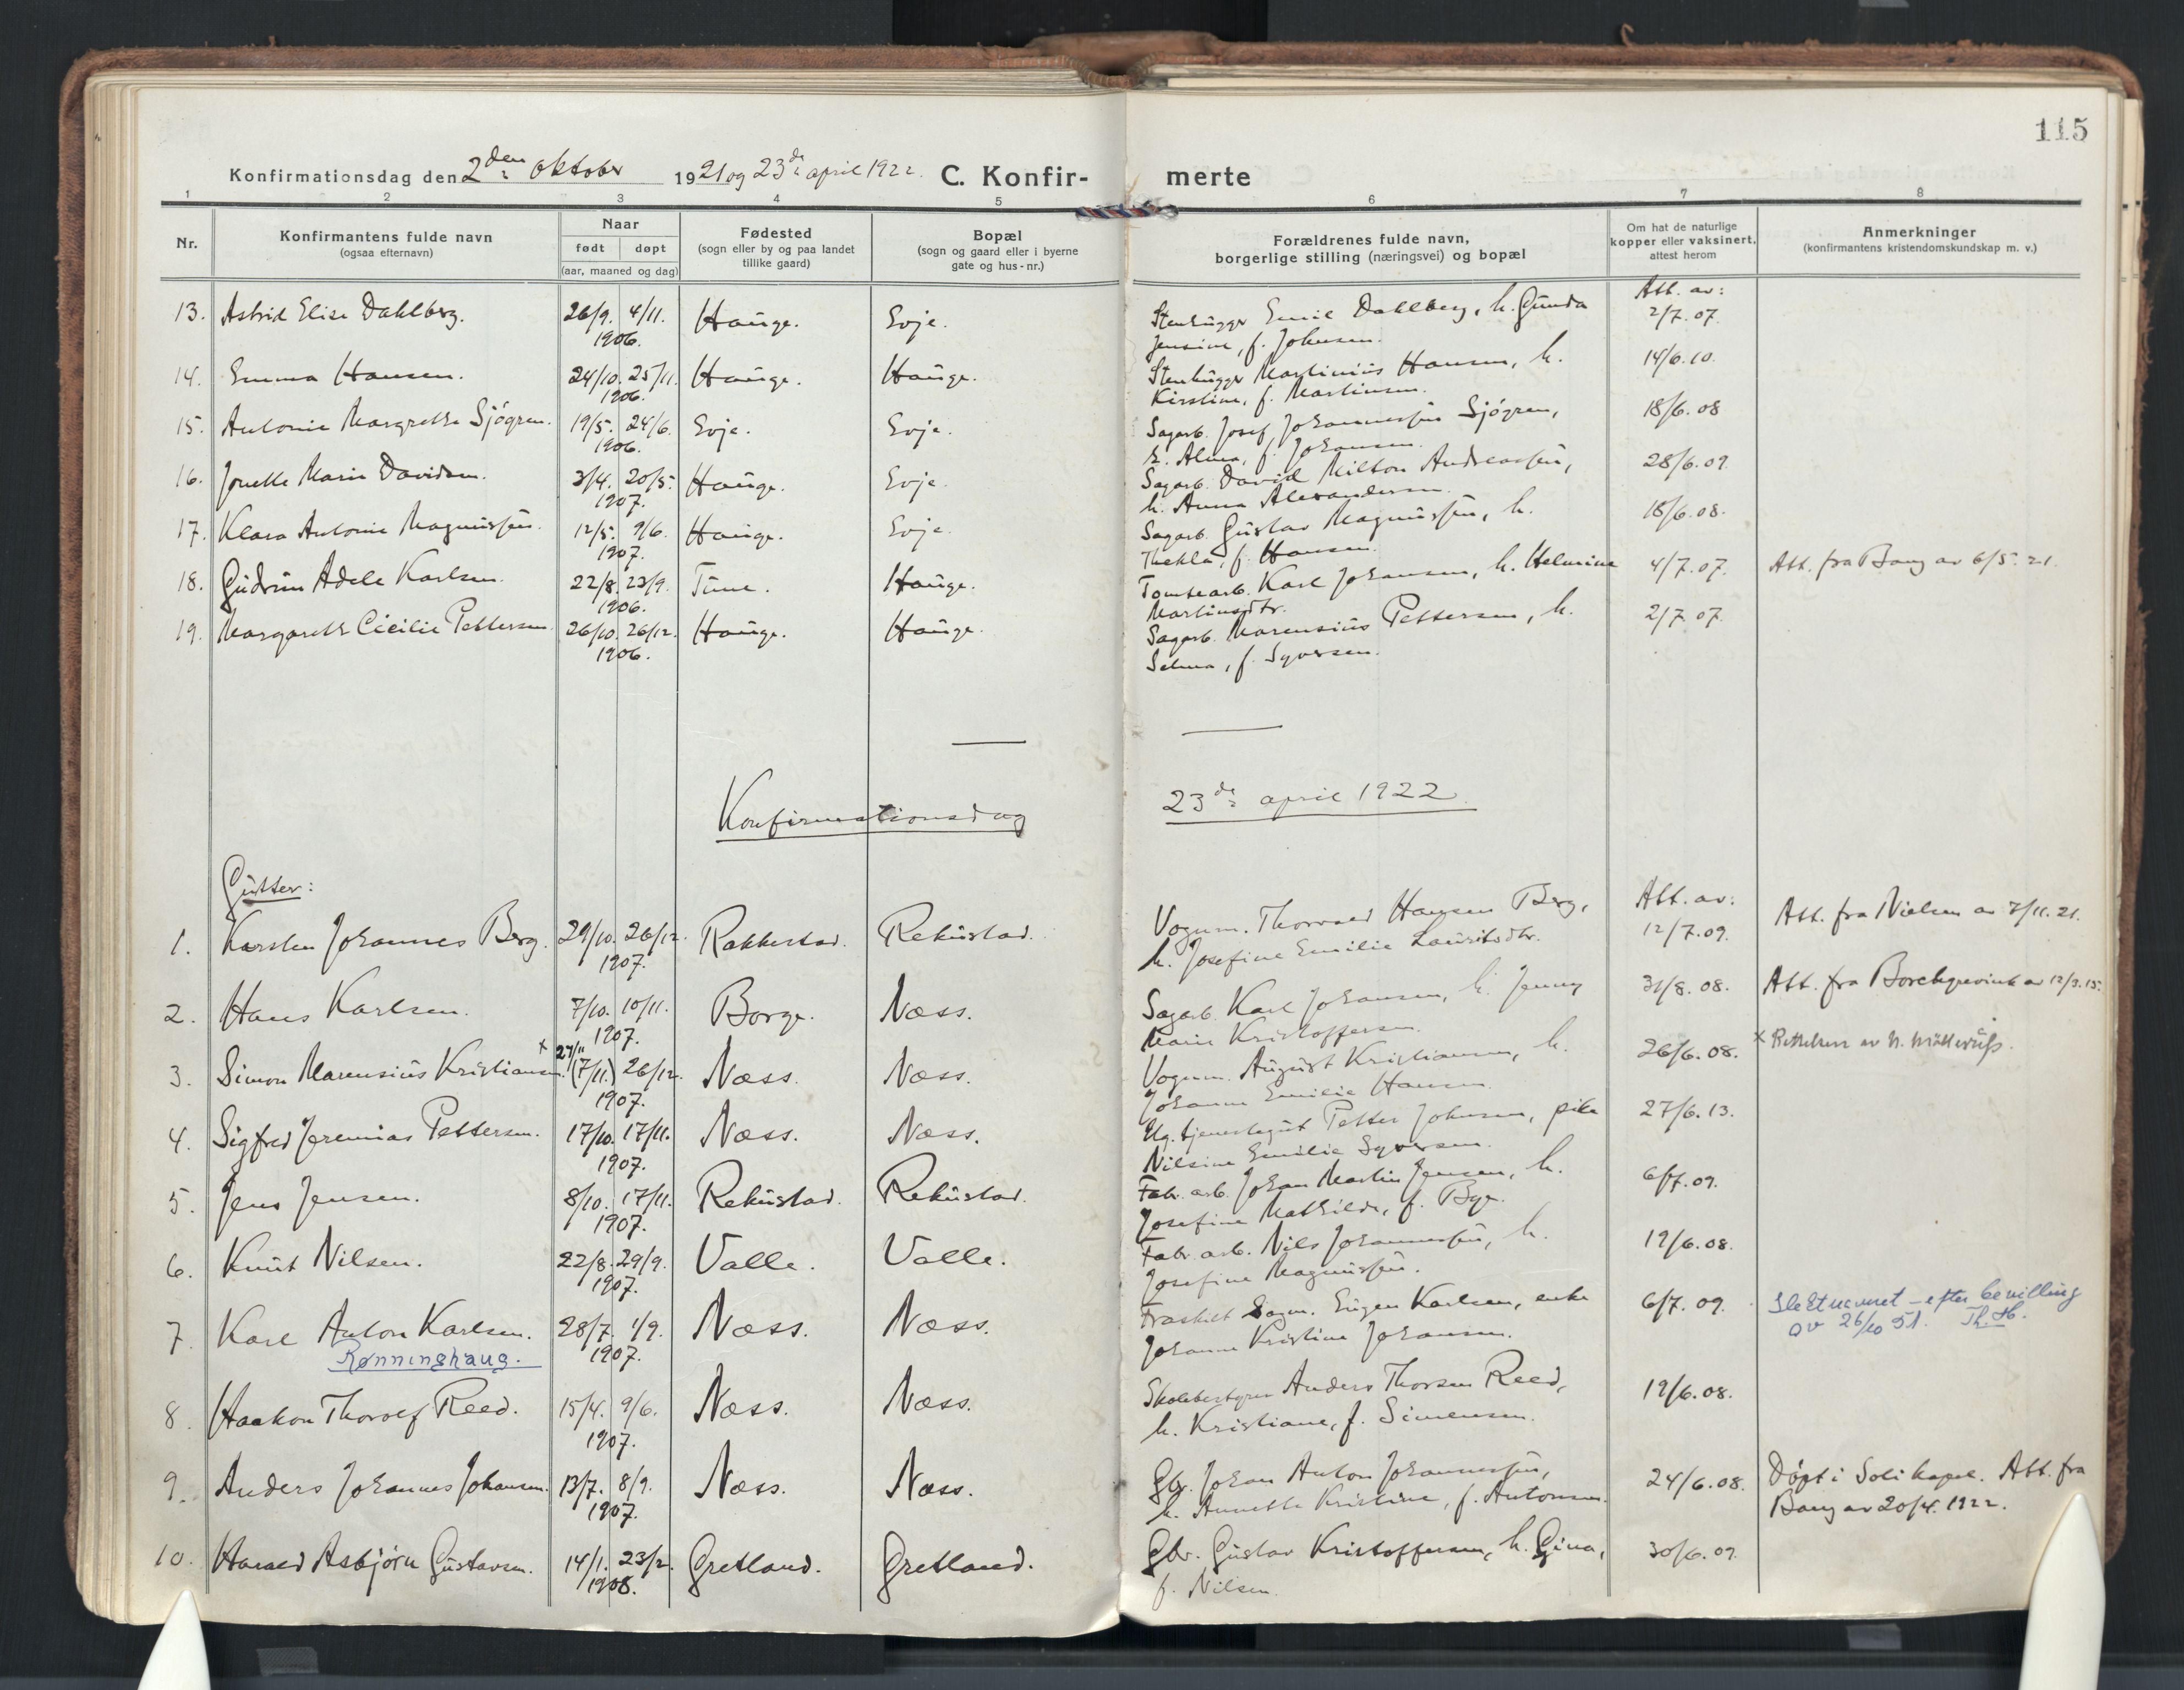 115
Konfirmationsdag den 2den oktober 1921 og 23de april 1922. C. Konfir- merte
1 2 3 4 5 6 7 8
Nr.
Konfirmantens fulde navn
(ogsaa efternavn)
Naar
født døpt
(aar, maaned og dag)
Fødested
(sogn eller by og paa landet
tillike gaard)
Bopæl
(sogn og gaard eller i byerne
gate og hus-nr.)
Forældrenes fulde navn,
borgerlige stilling (næringsvei) og bopæl
Om hat de naturlige
kopper eller vaksinert,
attest herom
Anmerkninger
(konfirmantens kristendomskundskap m. v.)
Att. av:
13. Astrid Elise Dahlberg. 26/9. 4/11. Hauge. Evje. Stenhugger Emil Dahlberg, h. Gunda 2/7. 07.
1906. Jensine, f. Johnsen.
14. Emma Hansen. 24/10. 25/11. Hauge. Hauge. Stenhugger Martinius Hansen, h. 14/6. 10.
1906. Kirstine, f. Martinsen.
15. Antonie Margrethe Sjögren. 19/5. 24/6. Evje. Evje. Sagarb. Josef Johannessen Sjögren, 18/6. 08
1906. h. Alma, f. Johansen.
16. Jonette Marie Davidsen. 3/4. 20/5. Hauge. Evje. Sagarb. David Milton Andreassen, 28/6. 09.
1907. h. Anna Alexandersen.
17. Klara Antonie Magnussen. 12/5. 9/6. Hauge. Evje. Sagarb. Gustav Magnussen, h. 18/6. 08.
1907. Thekla, f. Hansen.
18. Gudrun Adele Karlsen. 22/8. 23/9. Tune. Hauge. Tomtearb. Karl Johansen, h. Helmine 4/7. 07. Att. fra Bang av 6/5. 21.
1906. Martinsdtr.
19. Margarethe Cicilie Pettersen. 26/10. 26/12. Hauge. Hauge. Sagarb. Marensius Pettersen, h. 2/7. 07.
1906. Selma, f. Syversen.
Konfirmationsdag 23de april 1922.
Gutter: Att. av:
1. Karsten Johannes Berg. 29/10. 26/12. Rakkestad. Rekustad. Vognm. Thorvald Hansen Berg, 12/7. 09. Att. fra Nielsen av 7/11. 21.
1907. h. Josefine Emilie Lauritsdtr.
2. Hans Karlsen. 7/10. 10/11. Borge. Næss. Sagarb. Karl Johansen, h. Jenny 31/8. 08. Att. fra Borchgrevink av 12/3. 15.
1907. Marie Kristoffersen.
3. Simon Marensius Kristiansen. x 27/11 (7/11.) 26/12. Næss. Næss. Vognm. August Kristiansen, h. 26/6. 08. x Rettelsen av
1907. Johanne Emilie Hansen.
4. Sigfred Jeremias Pettersen. 17/10. 17/11. Næss. Næss. Ug. tjenestegut Petter Johnsen, pike 27/6. 13.
1907. Nilsine Emilie Syversen.
5. Jens Jensen. 8/10. 17/11. Rekustad. Rekustad. Fabr. arb. Johan Martin Jensen, h. 6/7. 09.
1907. Josefine Mathilde, f. Bye.
6. Knut Nilsen. 22/8. 29/9. Valle. Valle. Fabr. arb. Nils Johannessen, h. 19/6. 08.
1907. Josefine Magnussen.
7. Karl Anton Karlsen. 28/7. 1/9. Næss. Næss. Fraskilt Sagm. Eugen Karlsen, enke 6/7. 09. Slektnavnet – efter bevilling
Rønninghaug. 1907. Johanne Kristine Johansen. av 26/10 51. Th. H.
8. Haakon Thorolf Reed. 15/4. 9/6. Næss. Næss. Skolebestyrer Anders Thorsen Reed, 19/6. 08.
1907. h. Kristiane, f. Simensen.
9. Anders Johannes Johansen. 13/7. 8/9. Næss. Næss. Gbr. Johan Anton Johannessen, 24/6. 08. Döpt i Soli kapel. Att. fra
1907. h. Annette Kristine, f. Antonsen. Bang av 20/4. 1922.
10. Harald Asbjörn Gustavsen. 14/1. 23/2. Gretland. Gretland. Gbr. Gustav Kristoffersen, h. Gina, 30/6. 09.
1908. f. Nilsen.